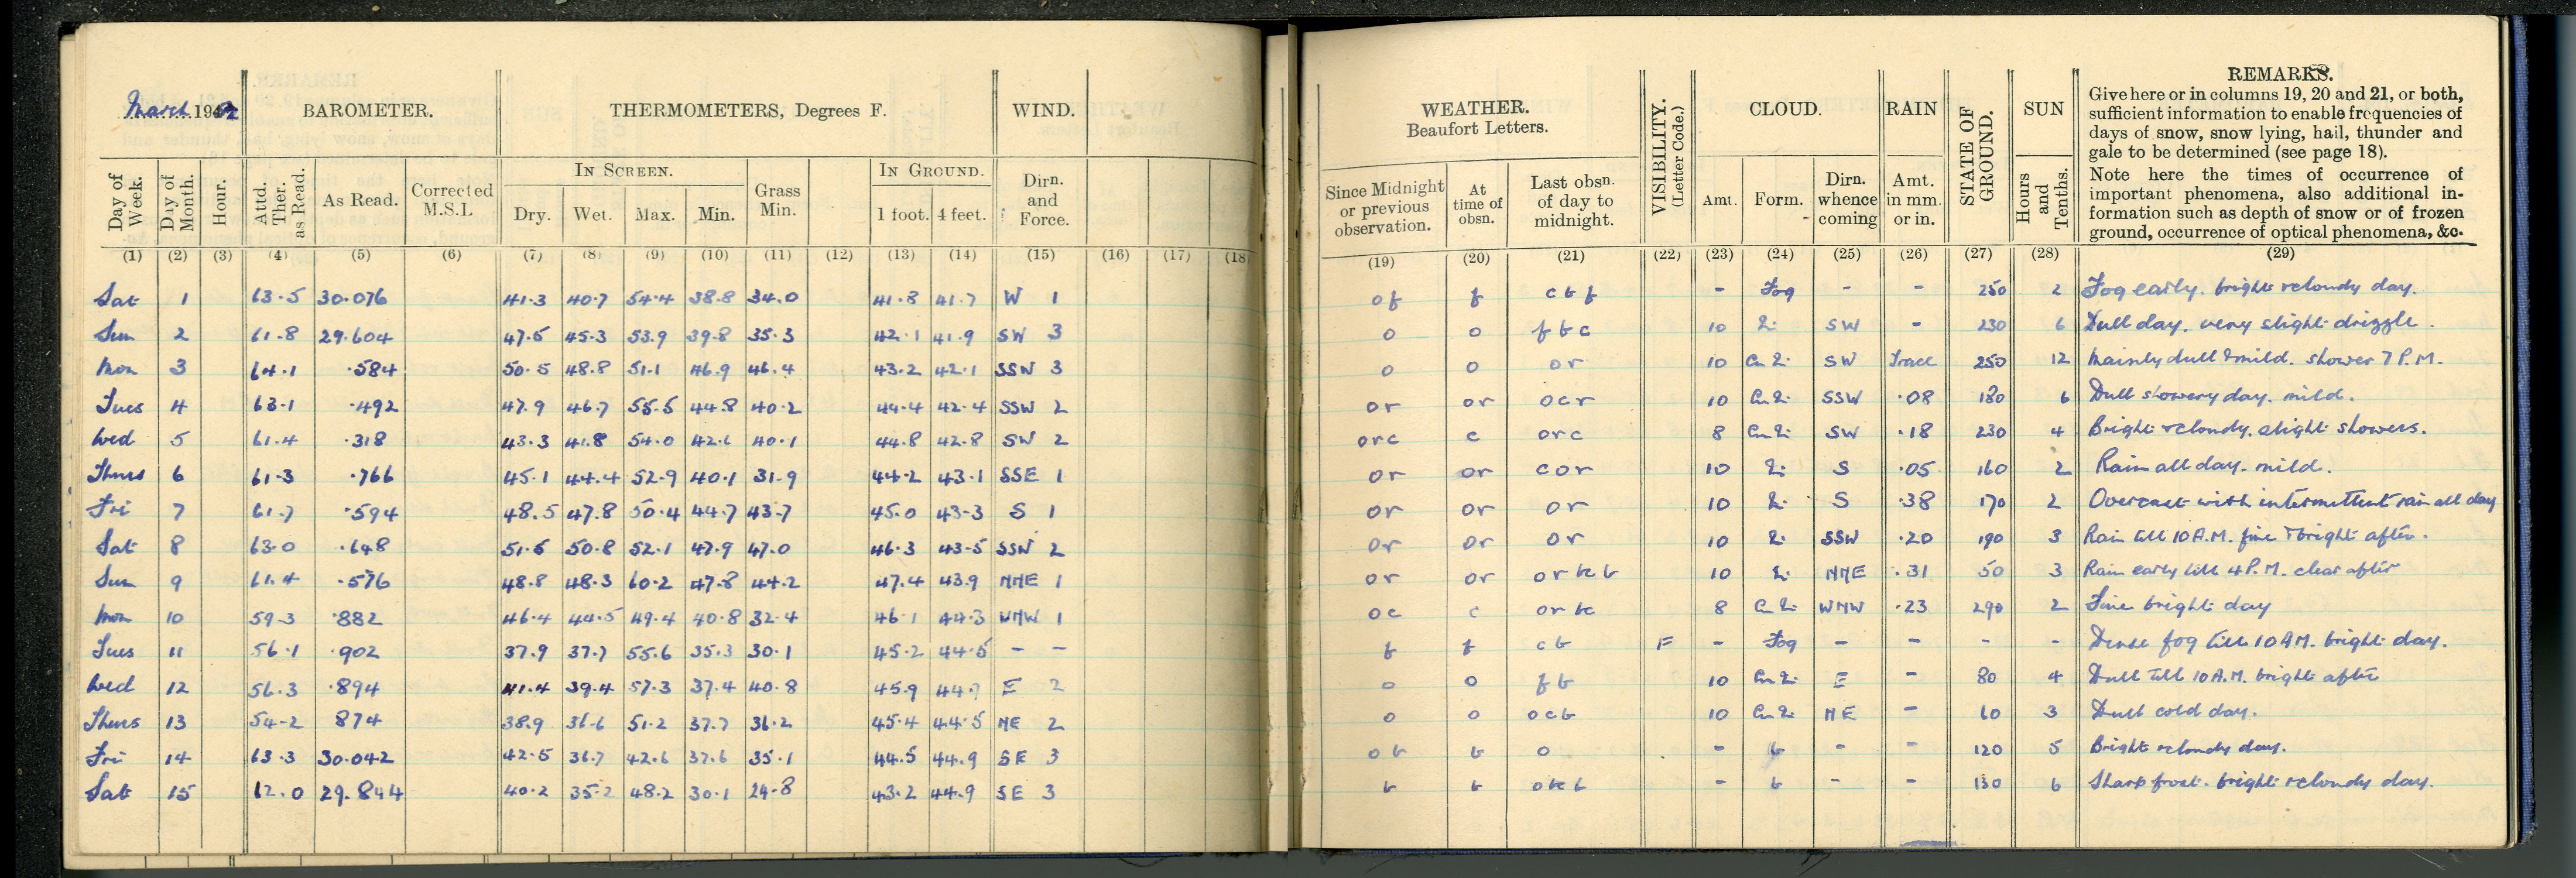 March 1942
BAROMETER.
THERMOMETERS, Degrees F.
WIND.
WEATHER.
Beaufort Letters.
VISIBILITY.
(Letter Code.)
CLOUD.
RAIN
STATE OF GROUND.
SUN
REMARKS.
Give here or in columns 19, 20 and 21, or both,
sufficient information to enable frequencies of
days of snow, snow lying, hail, thunder and
gale to be determined (see page 18).
Note here the times of occurrence of
important phenomena, also additional in-
formation such as depth of snow or of frozen
ground, occurrence of optical phenomena, &c.
Day of Week. Day of Month. Hour. Attd. Ther. as Read. As Read. Corrected M.S.L.
IN SCREEN.
Dry. Wet. Max. Min. Grass Min.
IN GROUND.
1 foot. 4 feet. Dirn. and Force.
Since Midnight or previous observation. At time of obsn. Last obsn. of day to midnight.
Amt. Form. Dirn. whence coming Amt. in mm. or in. Hours and Tenths.
(1) (2) (3) (4) (5) (6) (7) (8) (9) (10) (11) (12) (13) (14) (15) (16) (17) (18) (19) (20) (21) (22) (23) (24) (25) (26) (27) (28) (29)
Sat 1 63.5 30.076 41.3 40.7 54.4 38.8 34.0 41.8 41.7 W 1 of f cbf - Fog - - 250 2 Fog early. bright & cloudy day.
Sun 2 61.8 29.604 47.5 45.3 53.9 39.8 35.3 42.1 41.9 SW 3 o o fbc 10 SW - 230 6 Dull day. very slight drizzle.
Mon 3 64.1 .584 50.5 48.8 51.1 46.9 46.4 43.2 42.1 SSW 3 o o or 10 SW Trace 250 12 Mainly dull & mild. shower 7 P.M.
Tues 4 63.1 .492 47.9 46.7 55.5 44.8 40.2 44.4 42.4 SSW 2 or or ocr 10 SSW .08 180 6 Dull showery day. mild.
Wed 5 61.4 .318 43.3 41.8 54.0 42.1 40.1 44.8 42.8 SW 2 orc c orc 8 SW .18 230 4 Bright & cloudy. slight showers.
Thurs 6 61.3 .766 45.1 44.4 52.9 40.1 31.9 44.2 43.1 SSE 1 or or cor 10 S .05 160 2 Rain all day. mild.
Fri 7 61.7 .594 48.5 47.8 50.4 44.7 43.7 45.0 43.3 S 1 or or or 10 S .38 170 2 Overcast with intermittent rain all day
Sat 8 63.0 .648 51.5 50.8 52.1 47.9 47.0 46.3 43.5 SSW 2 or or or 10 SSW .20 190 3 Rain till 10 A.M. fine & bright after.
Sun 9 61.4 .576 48.8 48.3 60.2 47.8 44.2 47.4 43.9 NNE 1 or or 10 NNE .31 50 3 Rain early till 4 P.M. clear after
Mon 10 59.3 .882 46.4 44.5 49.4 40.8 32.4 46.1 44.3 WNW 1 oc c 8 WNW .23 290 2 Fine bright day
Tues 11 56.1 .902 37.9 37.7 55.6 35.3 30.1 45.2 44.5 - - f f cb F - Fog - - - - Dense fog till 10 AM. bright day.
Wed 12 56.3 .894 41.4 39.4 57.3 37.4 40.8 45.9 44.7 E 2 o o fb 10 E - 80 4 Dull till 10 A.M. bright after
Thurs 13 54.2 874 38.9 36.6 51.2 37.7 36.2 45.4 44.5 NE 2 o o ocb 10 NE - 60 3 Dull cold day.
Fri 14 63.3 30.042 42.5 36.7 42.6 37.6 35.1 44.5 44.9 SE 3 ob b o - b - - 120 5 Bright & cloudy day.
Sat 15 62.0 29.844 40.2 35.2 48.2 30.1 24.8 43.2 44.9 SE 3 b b - b - - 130 6 Sharp frost. bright & cloudy day.